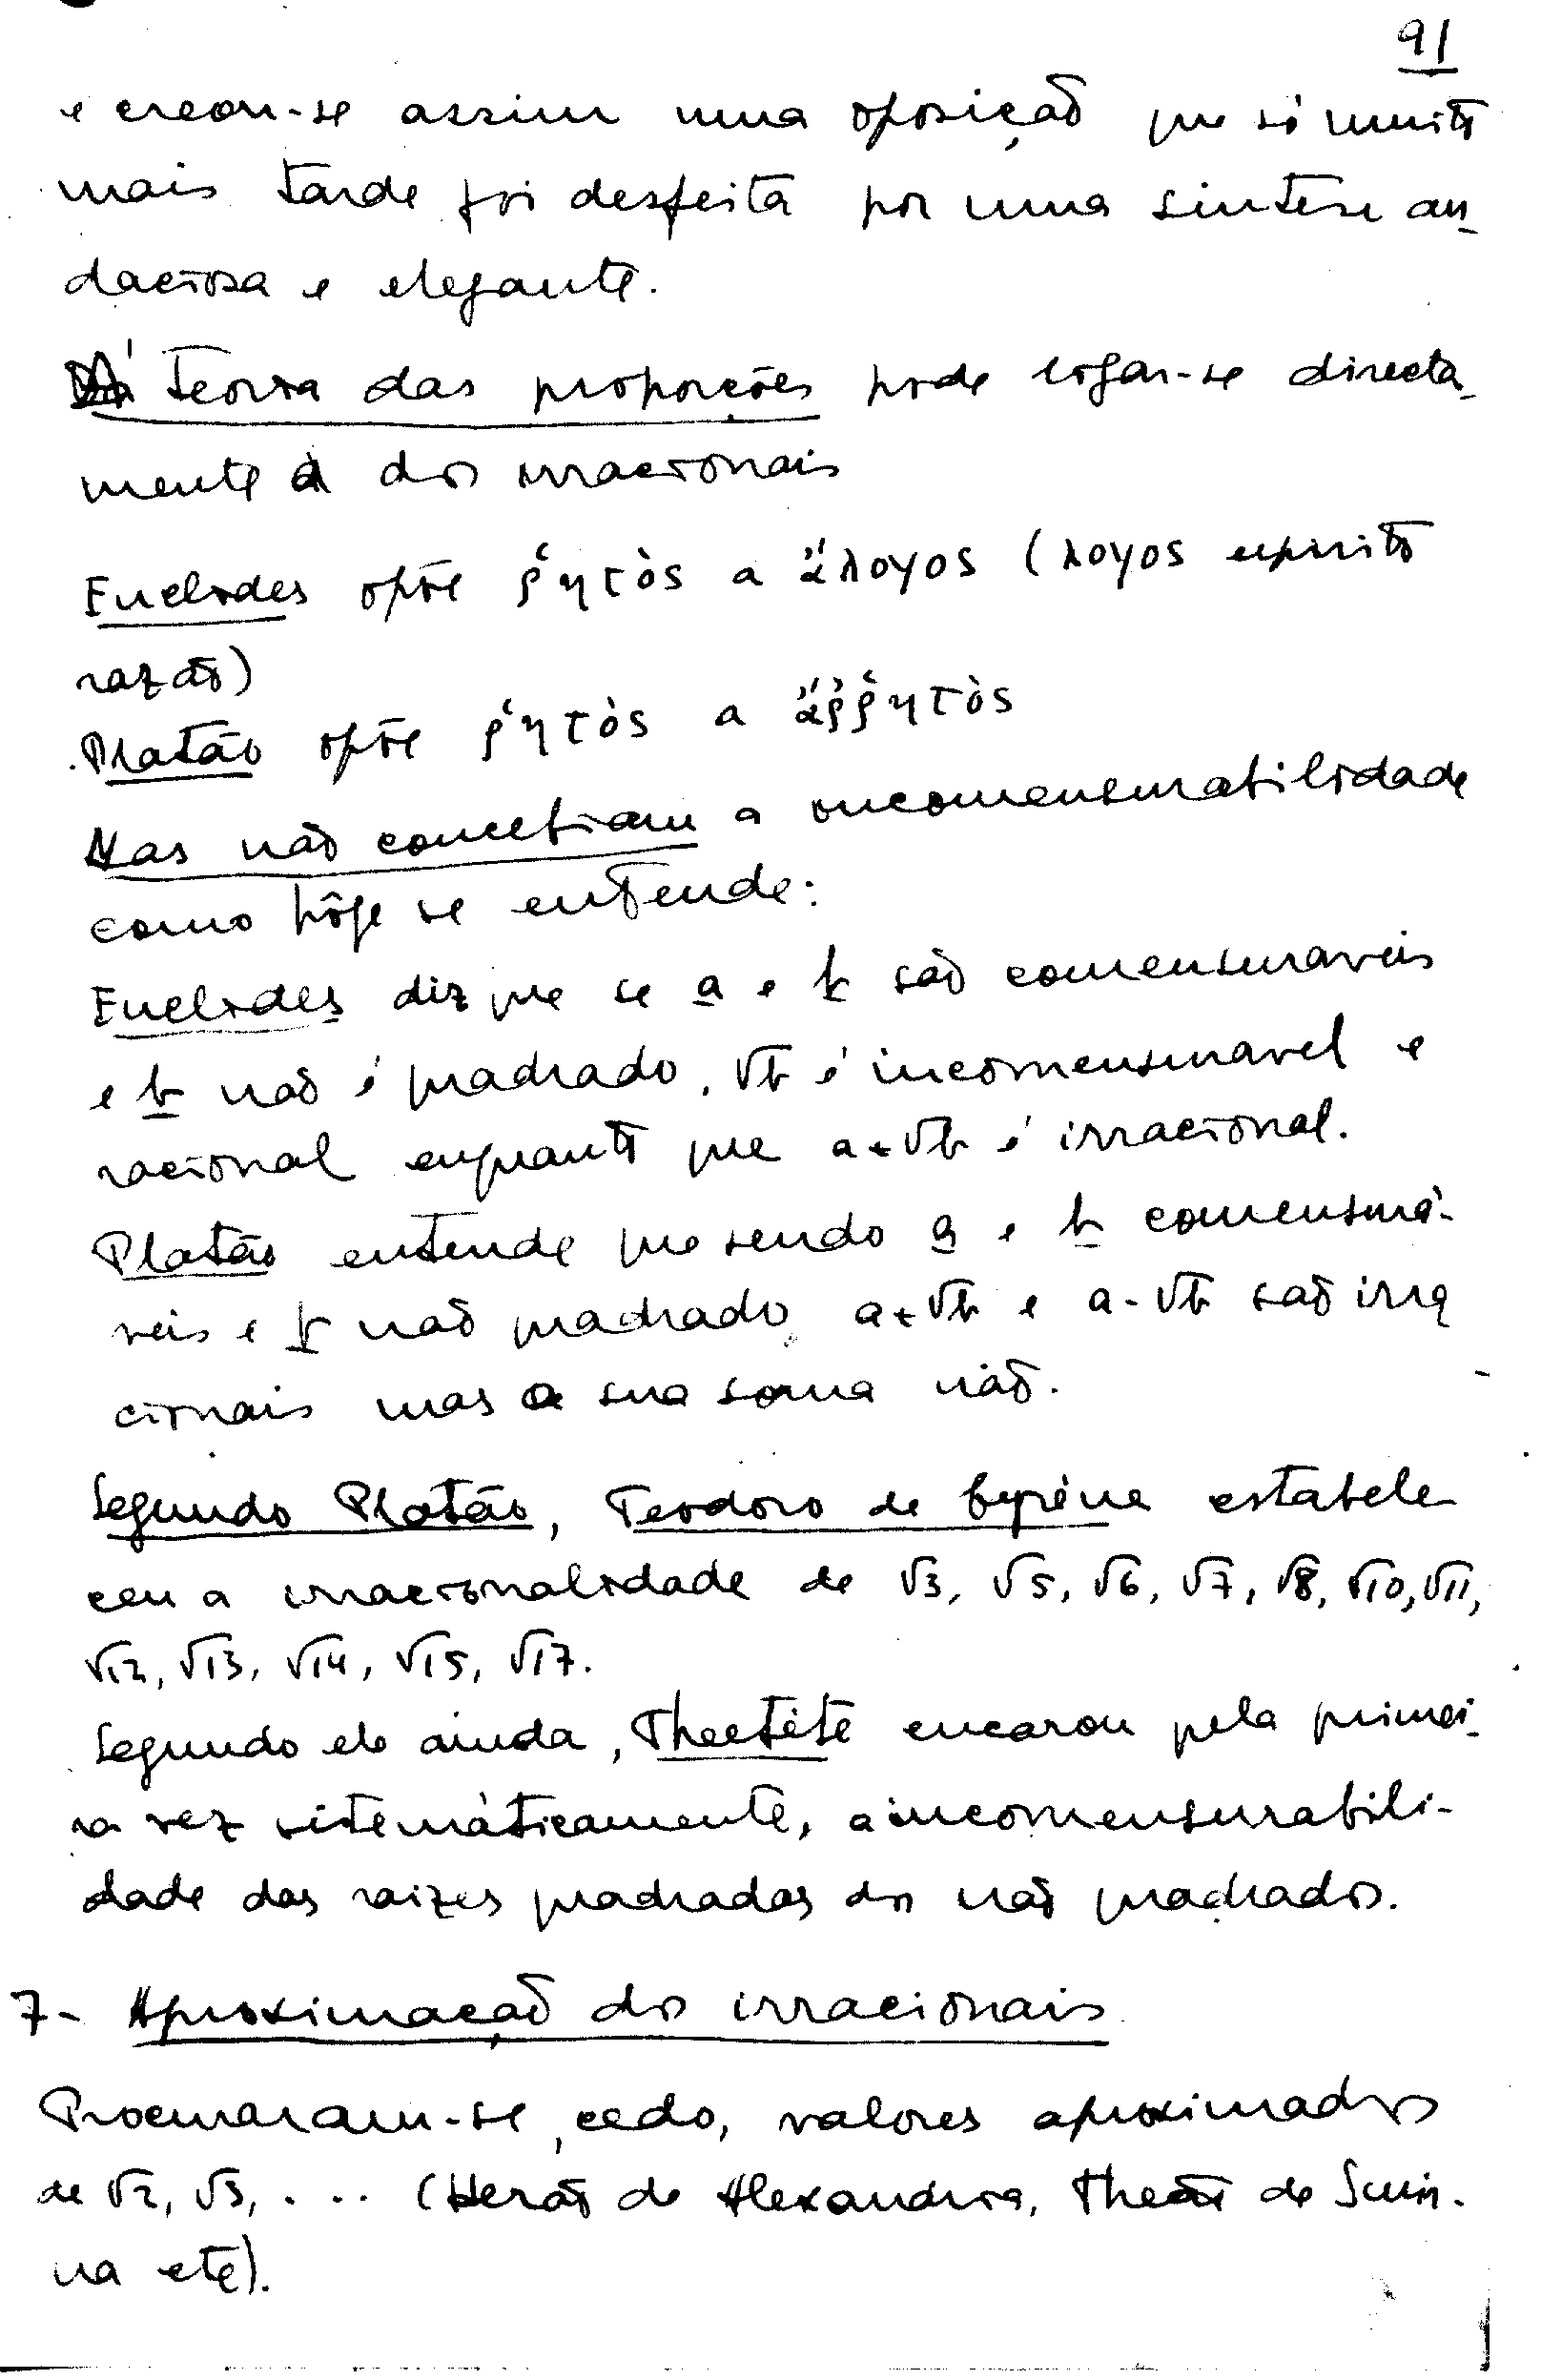 91
e creou-se assim uma oposição que só muito
mais tarde foi desfeita por uma síntese au
daciosa e elegante.
Á teoria das proporções pode ligar-se directa
mente a dos irracionais
Euclides opõe ῥητὸς a ἄλογος (λογος espirito
razão)
Platão opõe ῥητὸς a ἄῤῥητὸς
Mas não concebiam a incomensurabilidade
como hôje se entende:
Euclides diz que se a e b são comensuraveis
e b não é quadrado, √b é incomensuravel e
racional enquanto que a+√b é irracional.
Platão entende que sendo a e b comensurá-
veis e b não quadrado, a+√b e a-√b são irra
cionais mas a sua soma não.
Segundo Platão, Teodoro de Cyrène estabele
ceu a irracionalidade de √3, √5, √6, √7, √8, √10, √11,
√12, √13, √14, √15, √17.
Segundo ele ainda, Theetète encarou pela primei-
ra vez sistemàticamente, a incomensurabili-
dade das raizes quadradas dos não quadrados.
7- Aproximação dos irracionais
Procuraram-se, cedo, valores aproximados
de √2, √3, . . . (Herão de Alexandria, Theão de Smir-
na etc).